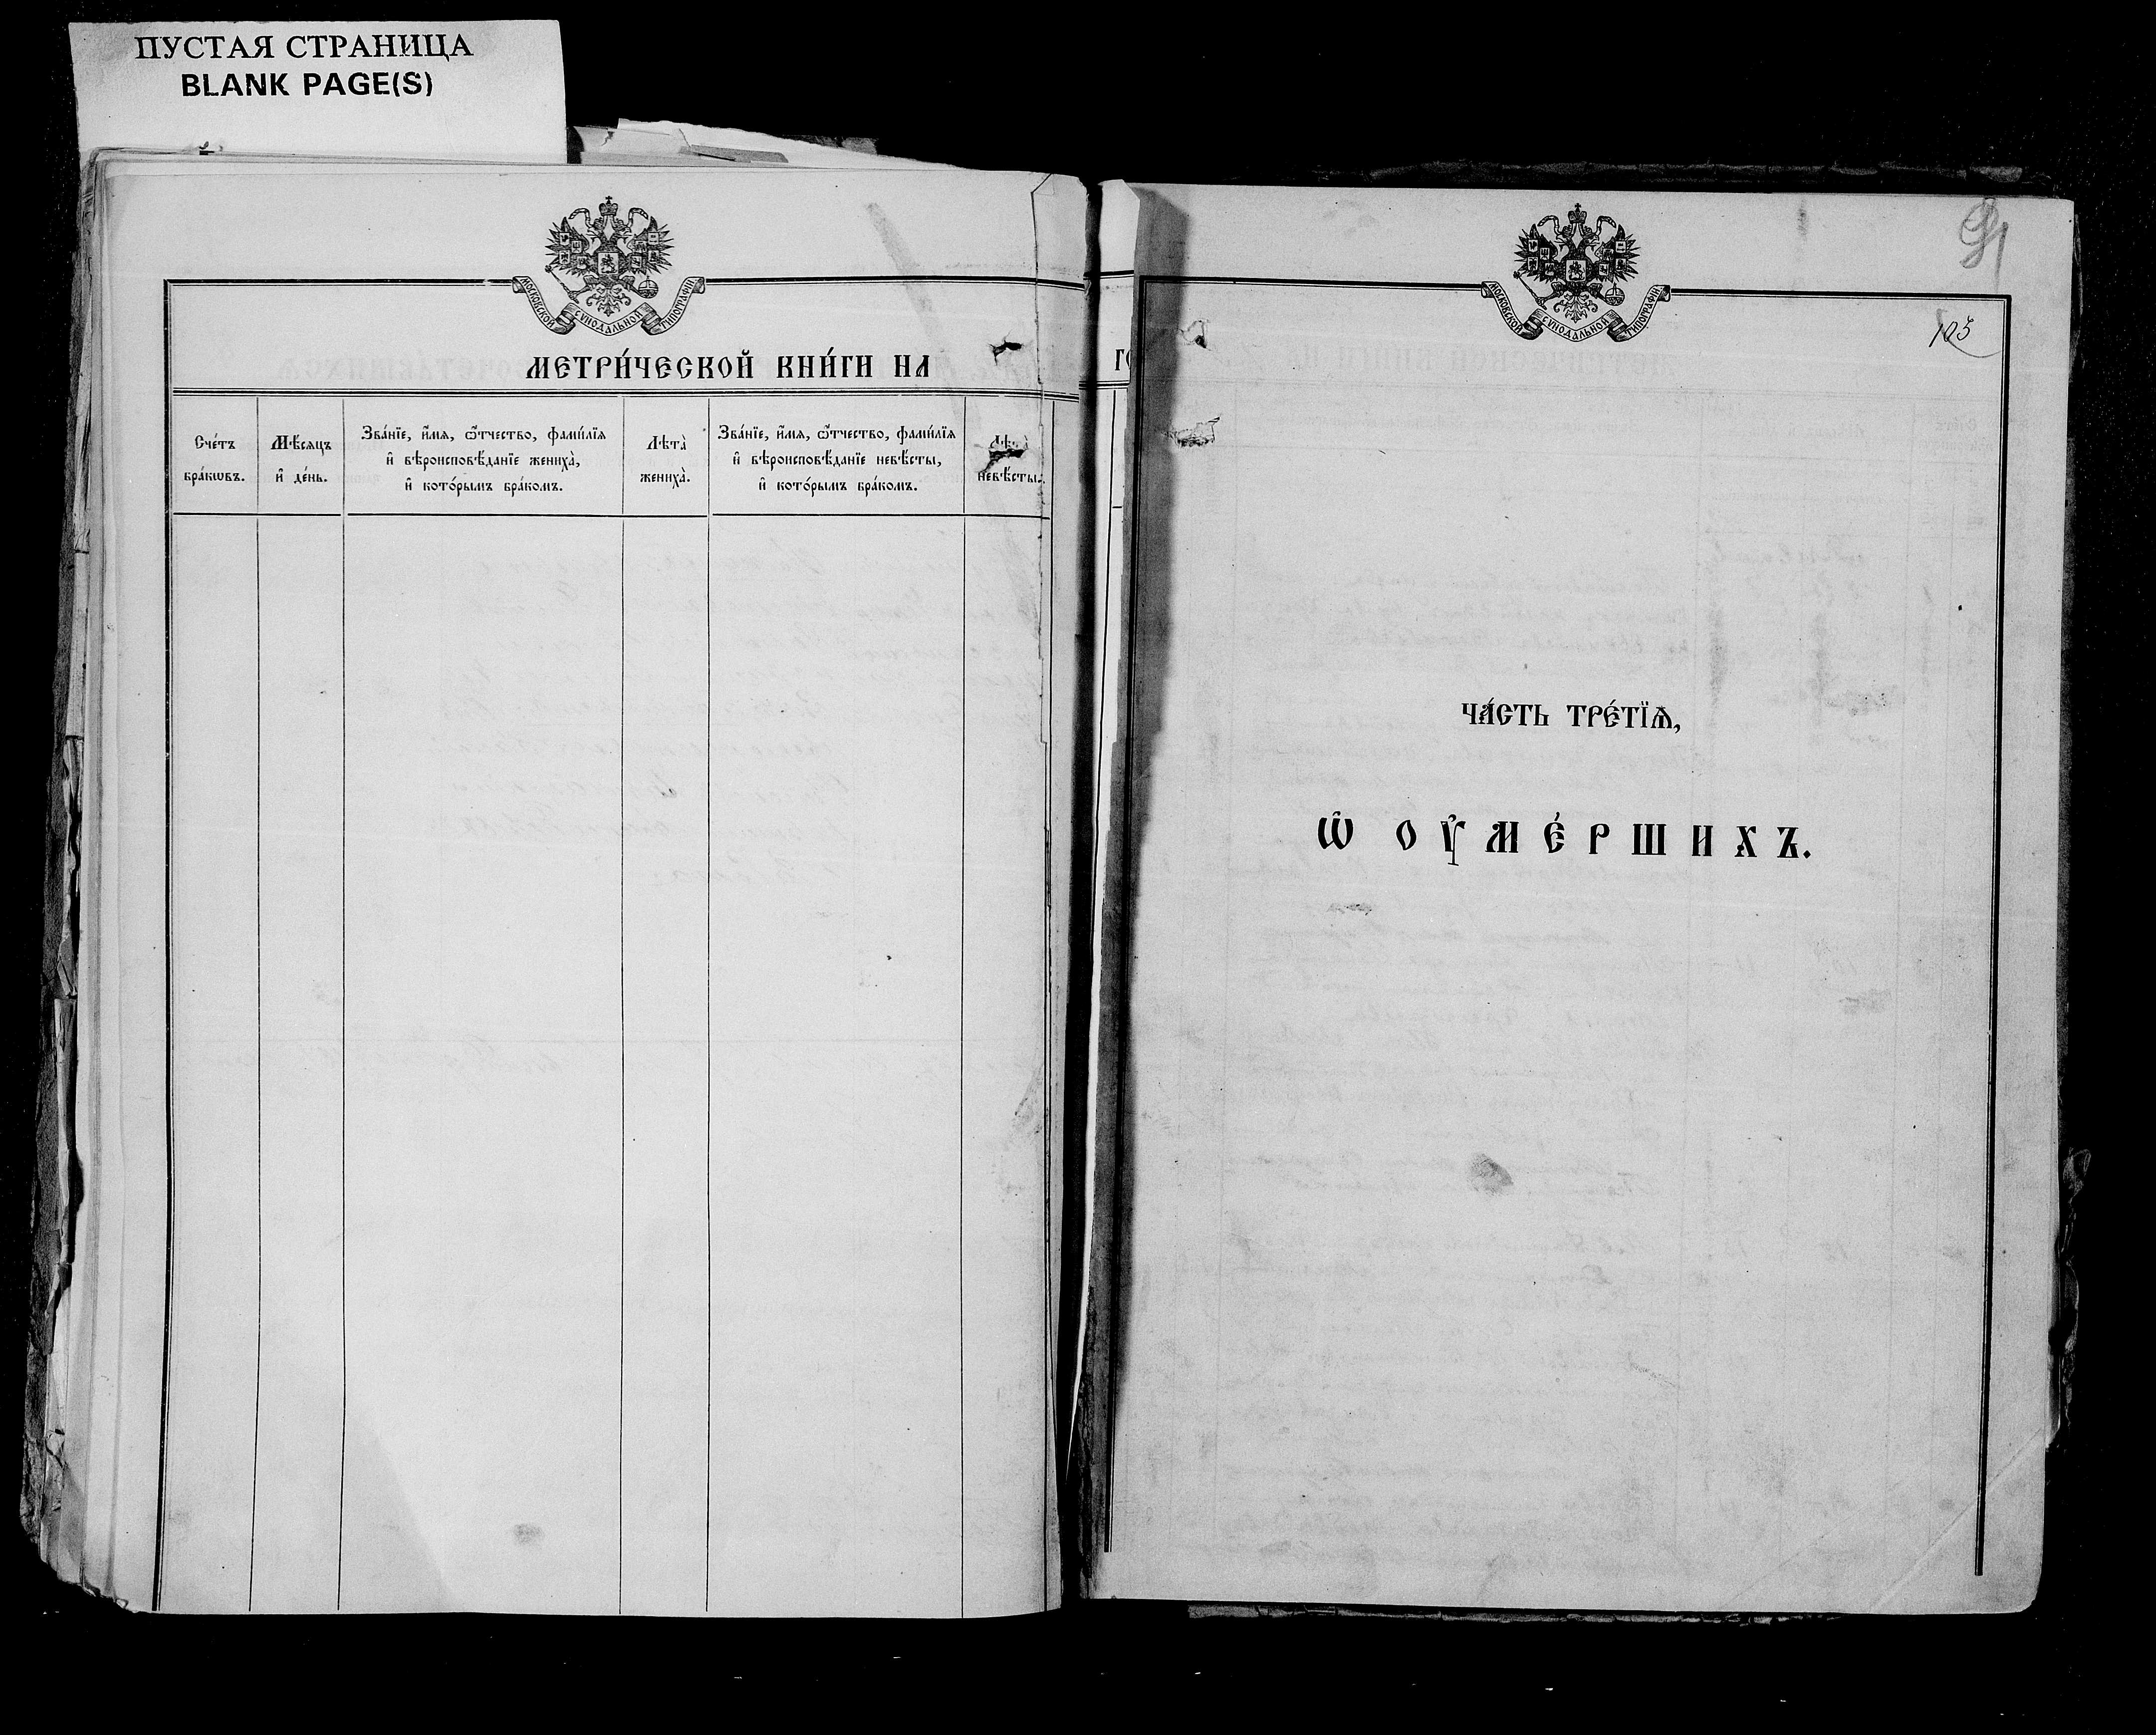 ПУСТАЯ СТРАНИЦА
BLANK PAGE(S)
МОСКОВСКОЙ СѴНОДАЛЬНОЙ ТИПОГРАФІИ
МЕТРИ́ЧЕСКОЙ КНИ́ГИ НА
Сче́тъ бра́кѡвъ.
Мѣ́сяцъ и҆ де́нь.
Зва́нїе, и҆́мѧ, ѻ҆́тчество, фами́лїѧ
и҆ вѣроисповѣ́данїе жениха̀,
и҆ кото́рымъ бра́комъ.
Лѣта̀ жениха̀.
Зва́нїе, и҆́мѧ, ѻ҆́тчество, фами́лїѧ
и҆ вѣроисповѣ́данїе невѣ́сты,
и҆ кото́рымъ бра́комъ.
Лѣта̀ невѣ́сты.
ГО
МОСКОВСКОЙ СѴНОДАЛЬНОЙ ТИПОГРАФІИ
91
103
ЧА́СТЬ ТРЕ́ТЇѦ,
Ѽ ОУ҆МЕ́РШИХЪ.